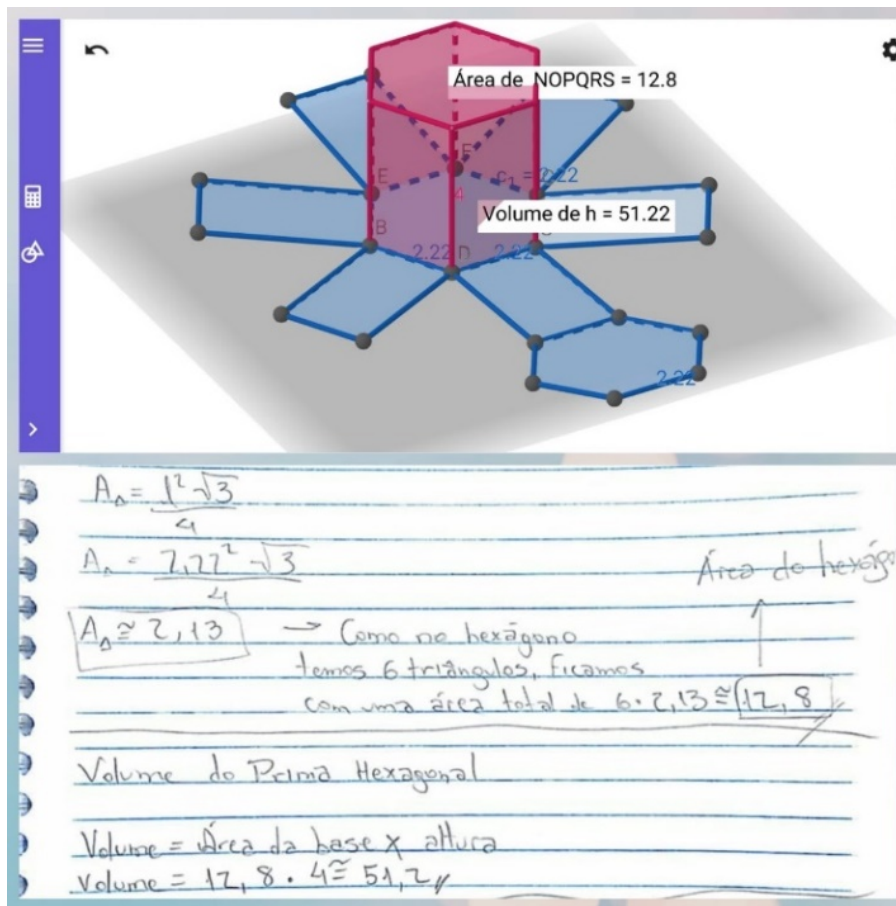 Área de NOPQRS = 12.8
F
E
c₁ = 2.22
4
Volume de h = 51.22
B
2.22
D
2.22
2.22
A△ = l²√3
4
A△ = 2,22²√3
4
Área do hexágo
A△ ≅ 2,13 → Como no hexágono
temos 6 triângulos, ficamos
com uma área total de 6·2,13 ≅ 12,8
Volume do Prima Hexagonal
Volume = Área da base x altura
Volume = 12,8 · 4 ≅ 51,2